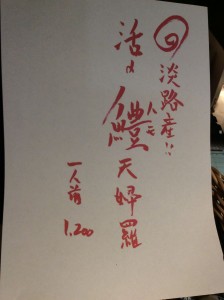 淡路産!!
ハモ
活〆鱧天婦羅
一人前 1,200